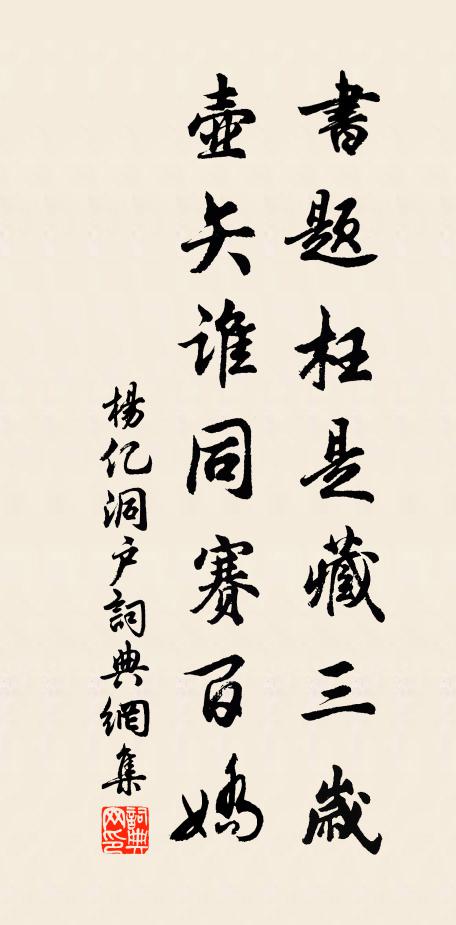 書題枉是藏三歲
壺矢誰同賽百嬌
楊億洞户詞典網集
詞典網印